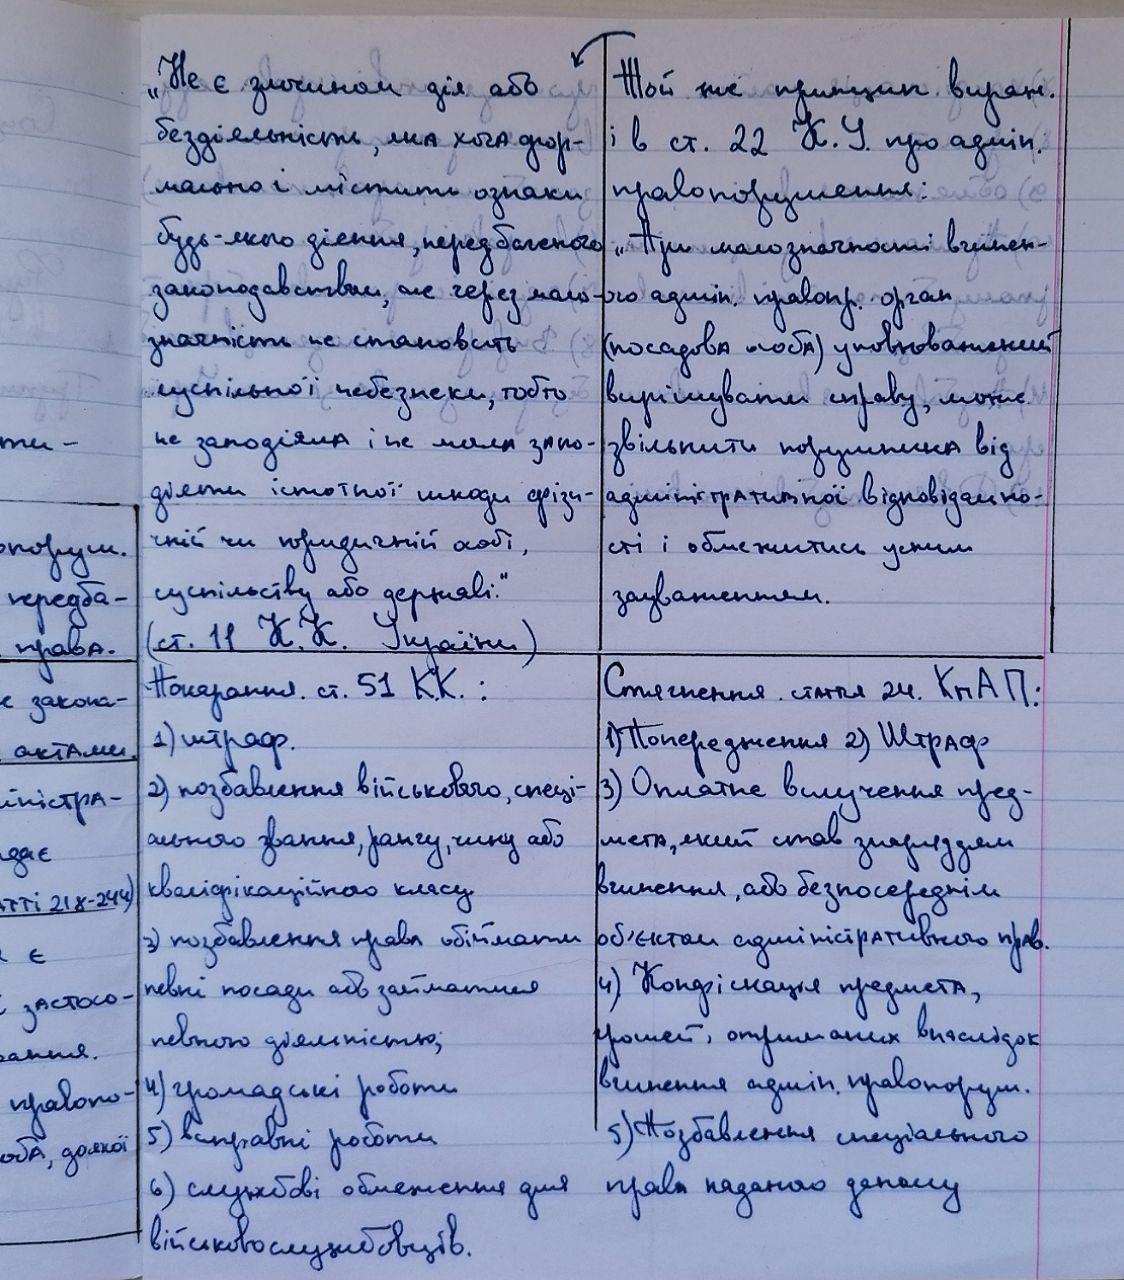 ти-
опоруш.
передба-
права.
е закона-
актами.
іністра-
дає
атті 218-244)
є
застосо-
вання.
правопо-
оба, до якої
„Не є злочином дія або
бездіяльність, яка хоча фор-
мально і містить ознаки
будь-якого діяння, передбаченого
законодавством, але через мало-
значність не становить
суспільної небезпеки, тобто
не заподіяла і не мала запо-
діяти істотної шкоди фізи-
чній чи юридичній особі,
суспільству або державі."
(ст. 11 К.К. України)
Той же принцип вираж.
і в ст. 22 К.У. про адмін.
правопорушення:
„При малозначності вчинен-
ого адмін. правопр. орган
(посадова особа) уповноважений
вирішувати справу, може
звільнити порушника від
адміністративної відповідально-
сті і обмежитись усним
зауваженням.
Покарання. ст. 51 КК.:
1) штраф.
2) позбавлення військового, спеці-
ального звання, рангу, чину або
кваліфікаційного класу
3) позбавлення права обіймати
певні посади або займатися
певною діяльністю;
4) громадські роботи
5) виправні роботи
6) службові обмеження для
військовослужбовців.
Стягнення. стаття 24. КпАП:
1) Попередження 2) Штраф
3) Оплатне вилучення пред-
мета, який став знаряддям
вчинення, або безпосереднім
об'єктом адміністративного прав.
4) Конфіскація предмета,
грошей, отриманих внаслідок
вчинення адмін. правопоруш.
5) Позбавлення спеціального
права наданого даному